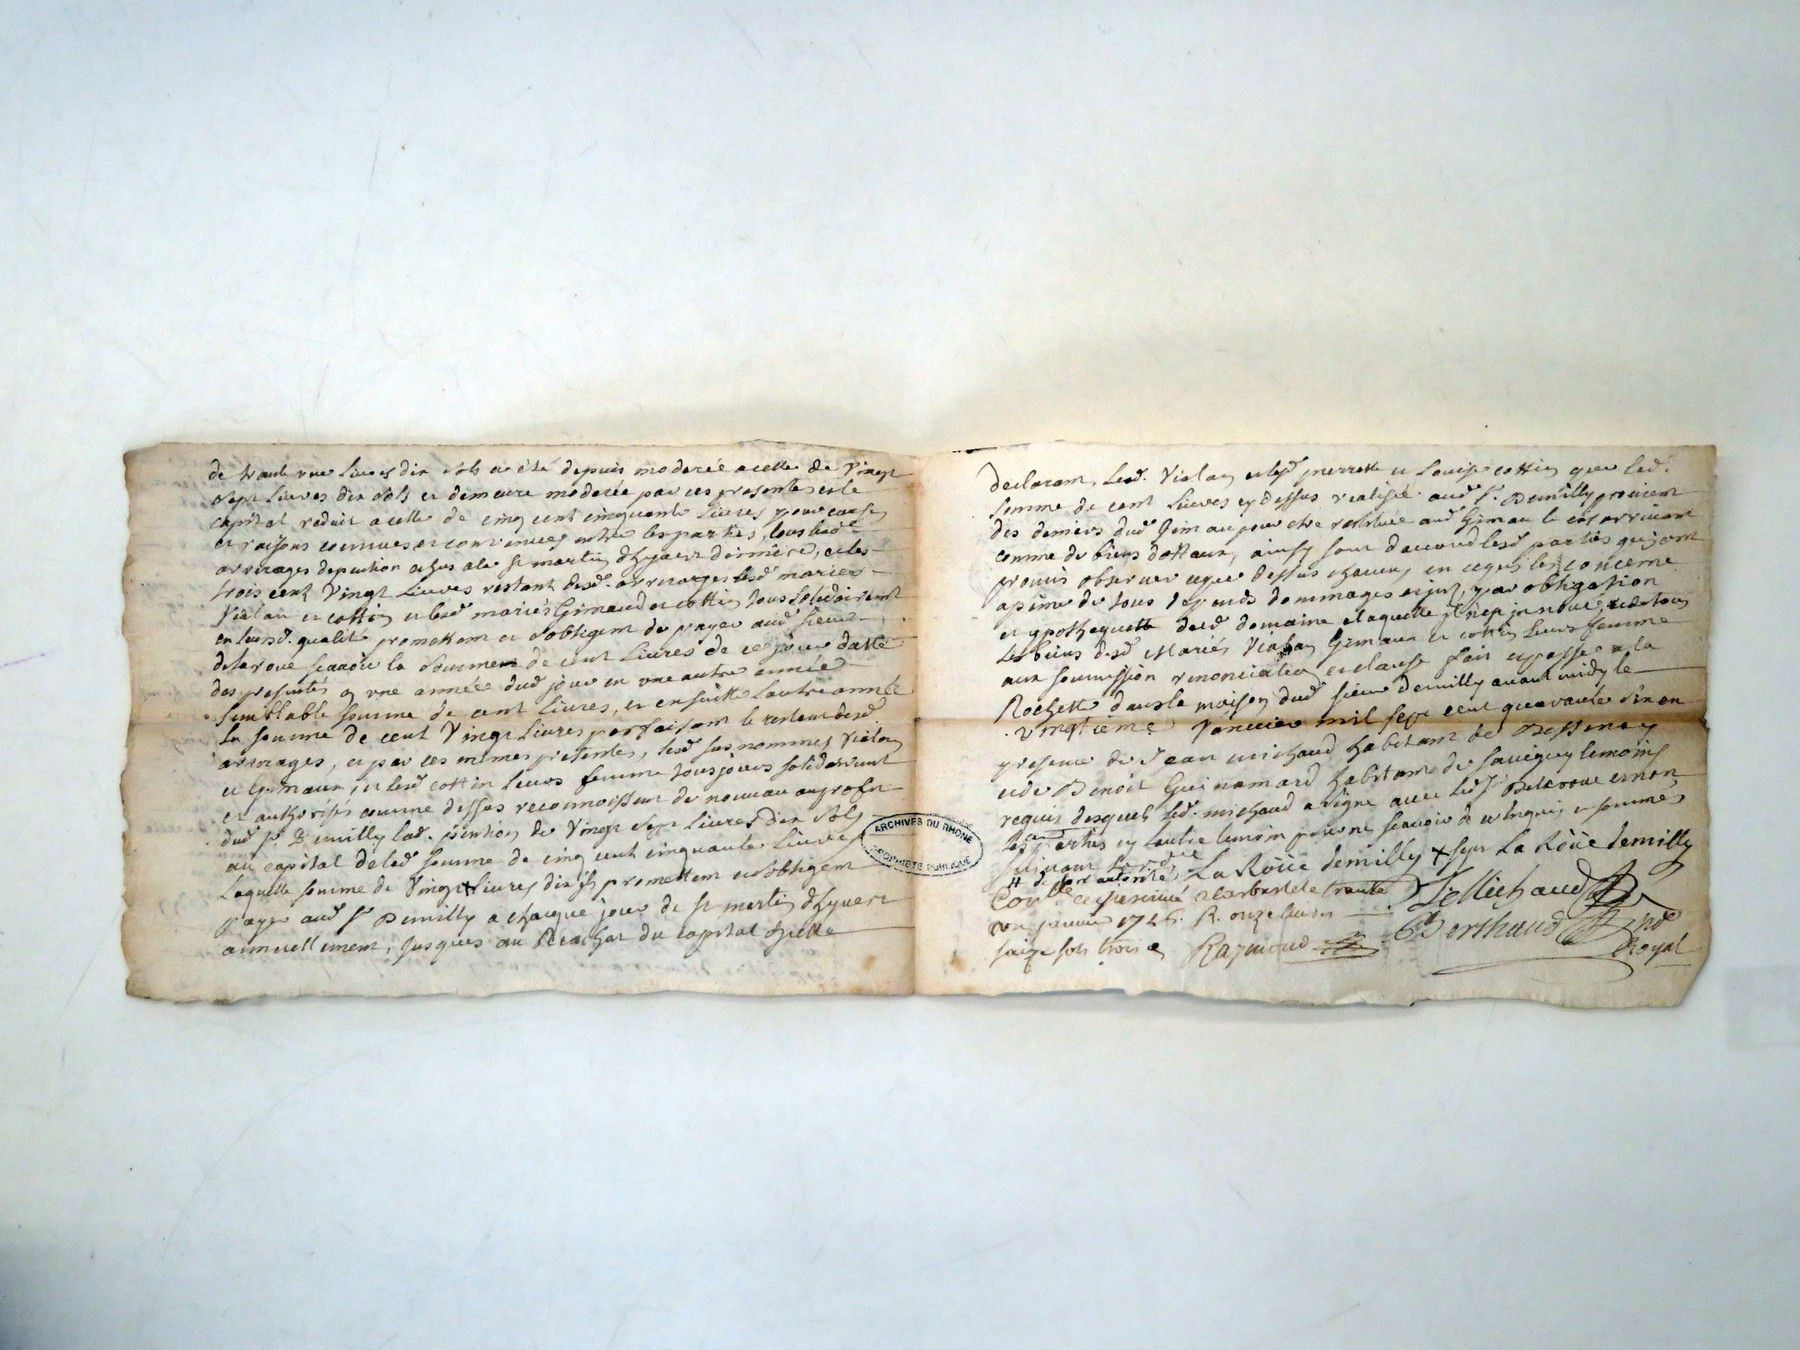 de trante une livres dix sols a été depuis moderée a celle de vingt
sept livres dix sols et demeure moderée par ces presentes et le
capital reduit a celle de cinq cent cinquante livres pour causes
et raisons connues et convenues entre les parties, tous lesd.
arrerages de pention echus a la st martin dhyvert derniere, et les
trois cent vingt livres restant desd. arrerages lesd mariés
Vialon et cottin et lesd mariés Grimaud et cottin tous solidairement
en leursd. qualité promettent et s'obligent de payer aud sieur
delaroue scavoir la somme de cent livres de ce jour datte
des presentes en une année dud jour en une autre année
semblable somme de cent livres, et ensuitte l'autre année
la somme de cent vingt livres parfaisant le restant desd
arrerages, et par ces mêmes presentes, lesd sus nommés Vialon
et Grimaux, et lesd cottin leurs femme tousjours solidairement
et authorisés comme dessus reconnoissent de nouveau au profit
dud sr. Demilly lad. pention de vingt sept livres dix sols
au capital de lad somme de cinq cent cinquante livres
laquelle somme de vingt livres dix ss promettent et s'obligent
payer aud sr Demilly a chaque jour de st martin dhyvert
annuellement, jusques au Rachat du capital d'icelle
declarant, lesd. Vialon et lesd pierrette et Louise cottin que lad.
somme de cent livres cy dessus realisée aud sr. Demilly provient
des deniers dud Grimau pour etre restitué aud Grimau le cas arrivant
comme de biens dottaux, ainsy sont d'accord lesd parties qui ont
promis observer ce que dessus chacun en ce qui les concerne
a peine de tous depends dommages et int. par obligation
et ypotheque dud domaine et laquelle n'est innové, et de tous
les biens desd mariés Vialon Grimaux et cottin leurs femme
aux soumission renonciation et clause fait et passé a la
Rochette dans la maison dud sieur demilly avant midy le
vingtieme Janvier mil sept cent quarante six en
presence de Jean michaud habitant de Bessenay
et de Benoit Guinamard habitant de savigny temoins
requis desquels led. michaud a signé avec led sr Delaroue et non
les parties ny l'autre temoin pour ne scavoir de ce enquis et sommés
suivant l'ord.ce La Roüe demilly + sept La Roüe demilly
de leur autorité
Con.le
J Michaud
an janvier 1746. R. onze livres
Berthaud
Nre
Royal
saize sols trois d Raymond
ARCHIVES DU RHONE
PROPRIÉTÉ PUBLIQUE